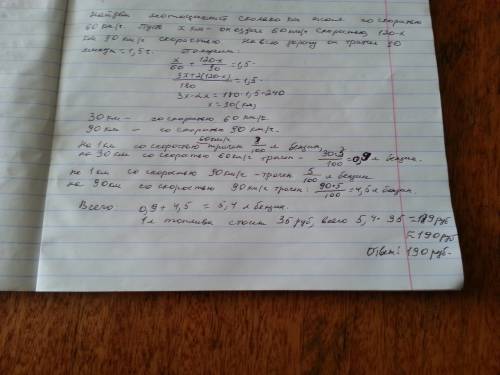 Найдём мотоциклист сколько км ехал со скоростью
60 км/ч. Пусть x км - он ехал 60 км/ч скоростью, 120-x
км 90 км/ч скоростью. На всю дорогу он тратил 90
минут = 1,5 ч.
x/60 + 120-x/90 = 1,5
3x+2(120-x)/180 = 1,5
3x-2x = 180·1,5-240
x = 30 (км)
30 км - со скоростью 60 км/ч.
90 км - со скоростью 90 км/ч.
на 1 км со скоростью 60 км/ч тратил 3/100 л бензин,
на 30 км со скоростью 60 км/ч тратил - 30·3/100 = 0,9 л бензин.
на 1 км со скоростью 90 км/ч - тратил 5/100 л бензин
на 90 км со скоростью 90 км/ч тратил: 90·5/100 = 4,5 л бензин.
Всего 0,9 + 4,5 = 5,4 л бензин.
1 л топлива стоит 35 руб, всего 5,4 · 35 = 189 руб
≈ 190 руб
Ответ: 190 руб.